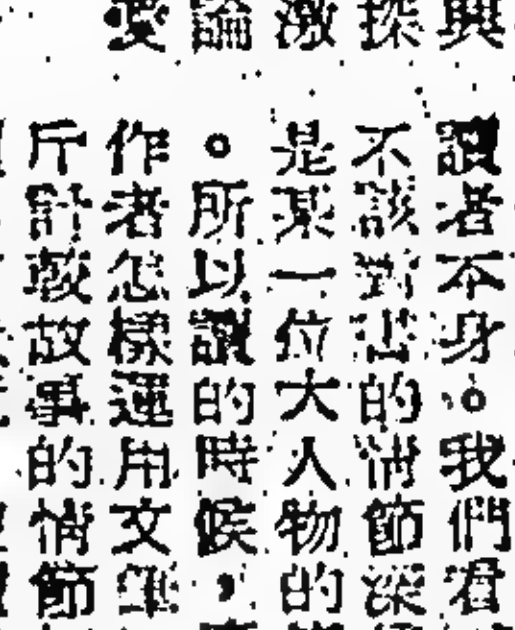 興
探
激
論
愛
讀者本身。我們看
不該對 的情節深
是某一位大人物的
。所以讀的時候，
作者怎樣運用文筆
斤計較故事的情節